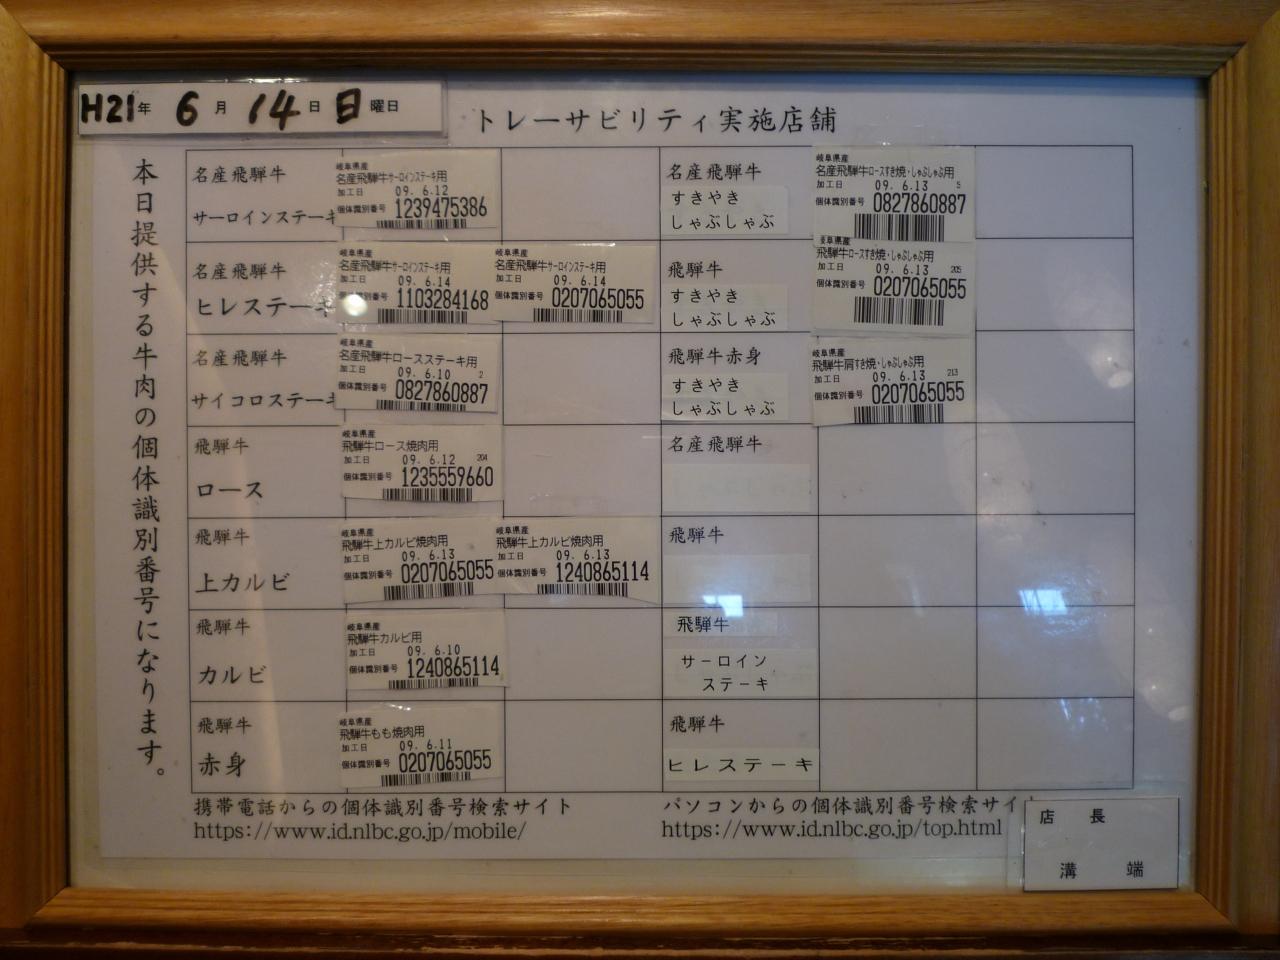 H21年 6月 14日 日曜日
トレーサビリティ実施店舗
本日提供する牛肉の個体識別番号になります。
名産飛騨牛
サーロインステーキ
岐阜県産
名産飛騨牛サーロインステーキ用
加工日 09. 6.12
個体識別番号 1239475386
名産飛騨牛
すきやき
しゃぶしゃぶ
岐阜県産
名産飛騨牛ロースすき焼・しゃぶしゃぶ用
加工日 09. 6.13 5
個体識別番号 0827860887
名産飛騨牛
ヒレステーキ
岐阜県産
名産飛騨牛サーロインステーキ用
加工日 09. 6.14
個体識別番号 1103284168
岐阜県産
名産飛騨牛サーロインステーキ用
加工日 09. 6.14
個体識別番号 0207065055
飛騨牛
すきやき
しゃぶしゃぶ
岐阜県産
飛騨牛ロースすき焼・しゃぶしゃぶ用
加工日 09. 6.13 205
個体識別番号 0207065055
名産飛騨牛
サイコロステーキ
岐阜県産
名産飛騨牛ロースステーキ用
加工日 09. 6.10 2
個体識別番号 0827860887
飛騨牛赤身
すきやき
しゃぶしゃぶ
岐阜県産
飛騨牛肩すき焼・しゃぶしゃぶ用
加工日 09. 6.13 213
個体識別番号 0207065055
飛騨牛
ロース
岐阜県産
飛騨牛ロース焼肉用
加工日 09. 6.12 204
個体識別番号 1235559660
名産飛騨牛
飛騨牛
上カルビ
岐阜県産
飛騨牛上カルビ焼肉用
加工日 09. 6.13
個体識別番号 0207065055
岐阜県産
飛騨牛上カルビ焼肉用
加工日 09. 6.13
個体識別番号 1240865114
飛騨牛
飛騨牛
カルビ
岐阜県産
飛騨牛カルビ用
加工日 09. 6.10
個体識別番号 1240865114
飛騨牛
サーロイン
ステーキ
飛騨牛
赤身
岐阜県産
飛騨牛もも焼肉用
加工日 09. 6.11
個体識別番号 0207065055
飛騨牛
ヒレステーキ
携帯電話からの個体識別番号検索サイト
https://www.id.nlbc.go.jp/mobile/
パソコンからの個体識別番号検索サイト
https://www.id.nlbc.go.jp/top.html
店 長
溝 端